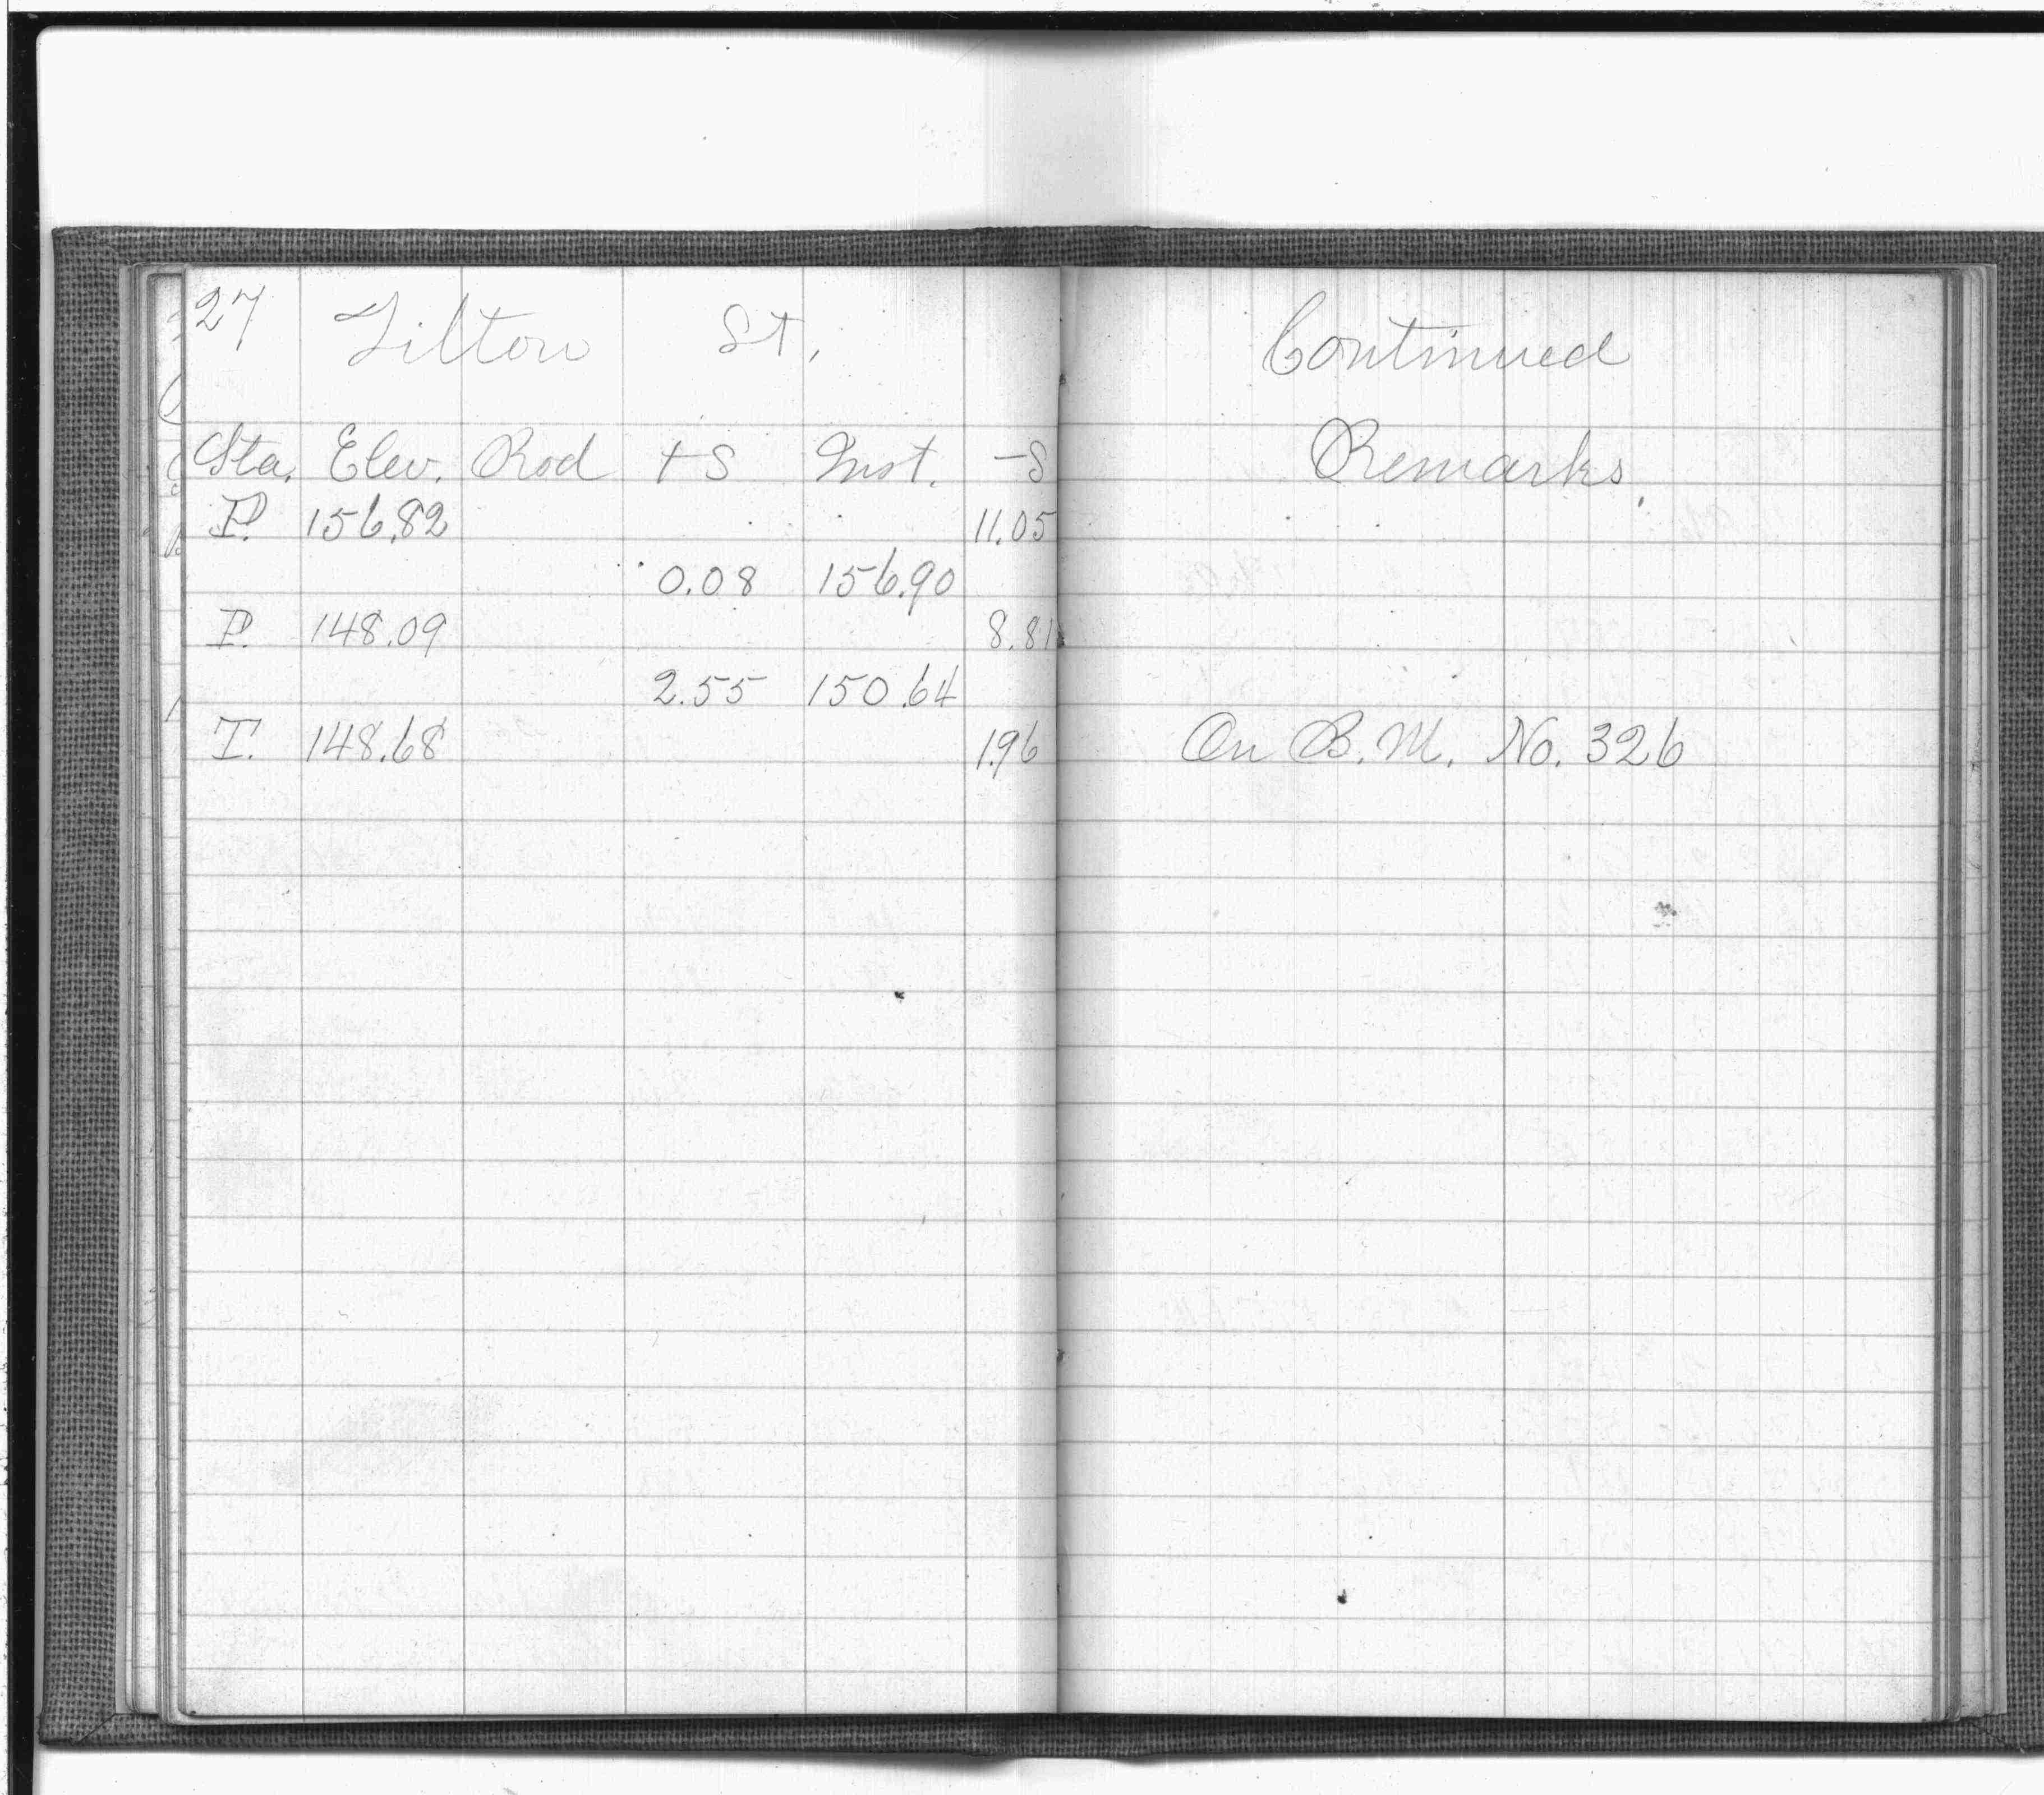 27 Tilton St. Continued
Sta. Elev. Rod +S Inst. -S Remarks.
P. 156.82 11.05
0.08 156.90
P. 148.09 8.81
2.55 150.64
T. 148.68 1.96 On B.M. No. 326